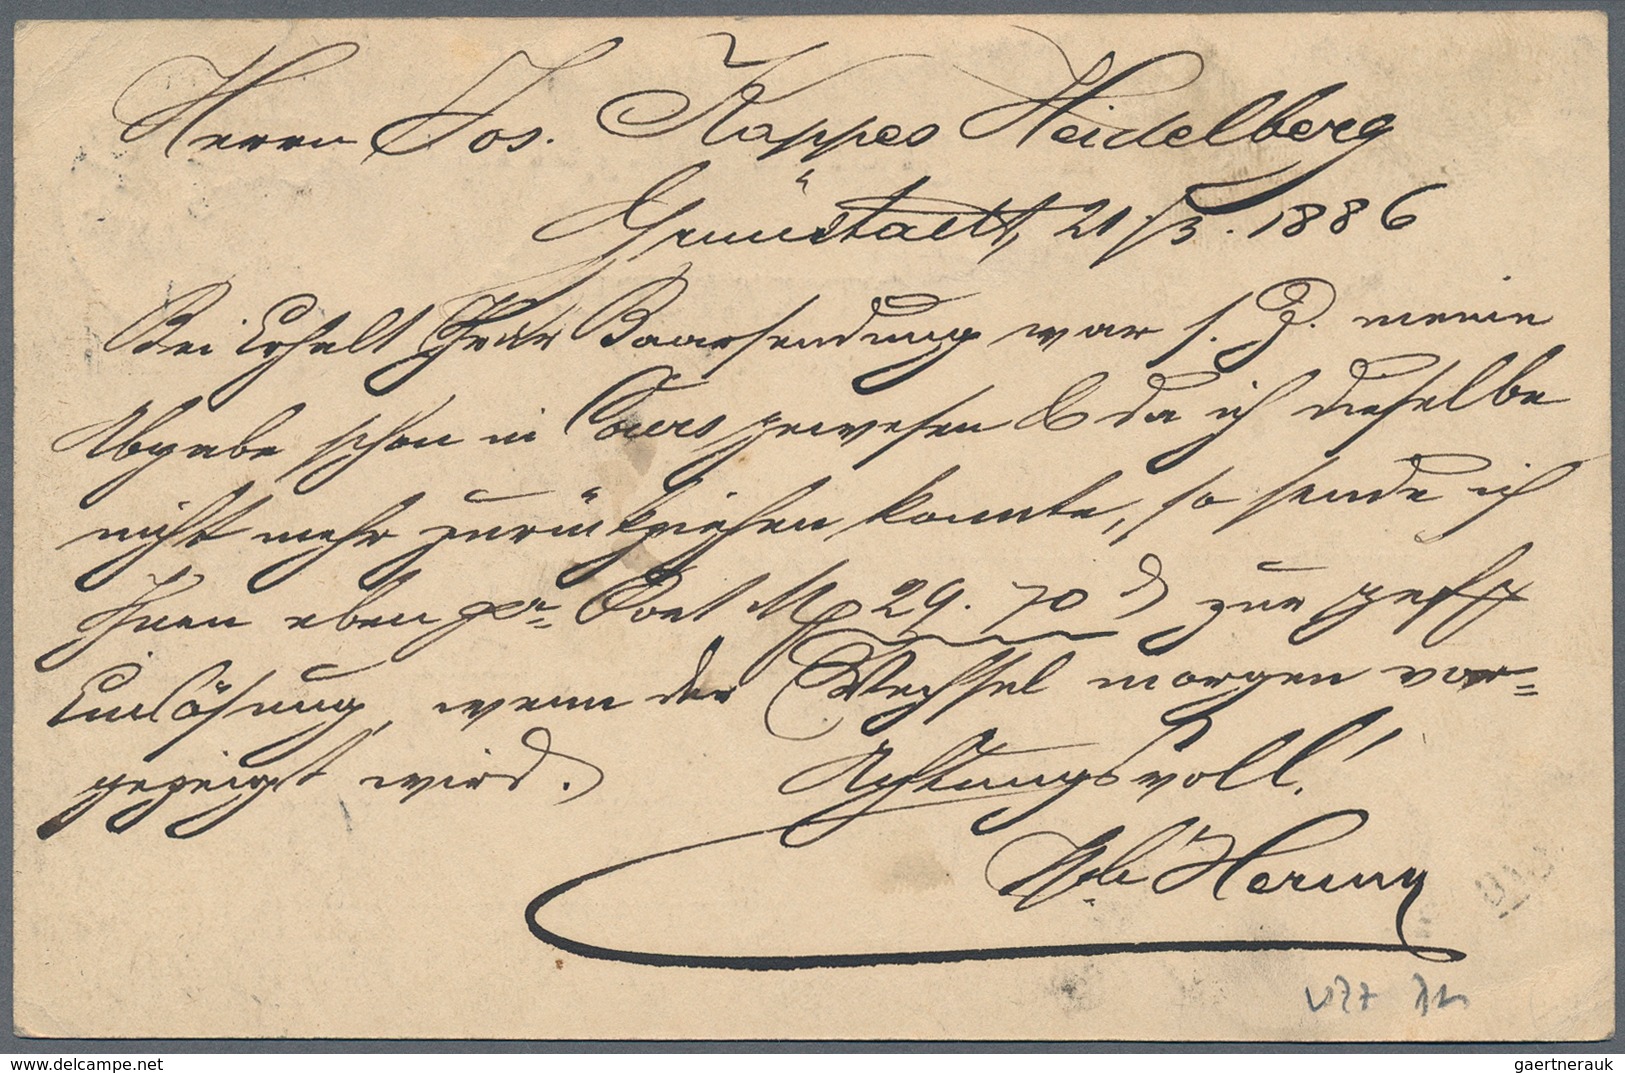 Herrn Jos. Kappes Heidelberg
Grünstadt, 21/3. 1886
Bei Erhalt Ihrer Baarsendung war s. Z. meine
Abgabe schon in Cours gewesen & da ich dieselbe
nicht mehr zurückziehen konnte, so sende ich
Ihnen eben per Post M 29. 70 ₰ zur gefl
Einlösung, wenn der Wechsel morgen vor=
gezeigt wird. Achtungsvoll!
delcampe.net
gaertnerauk